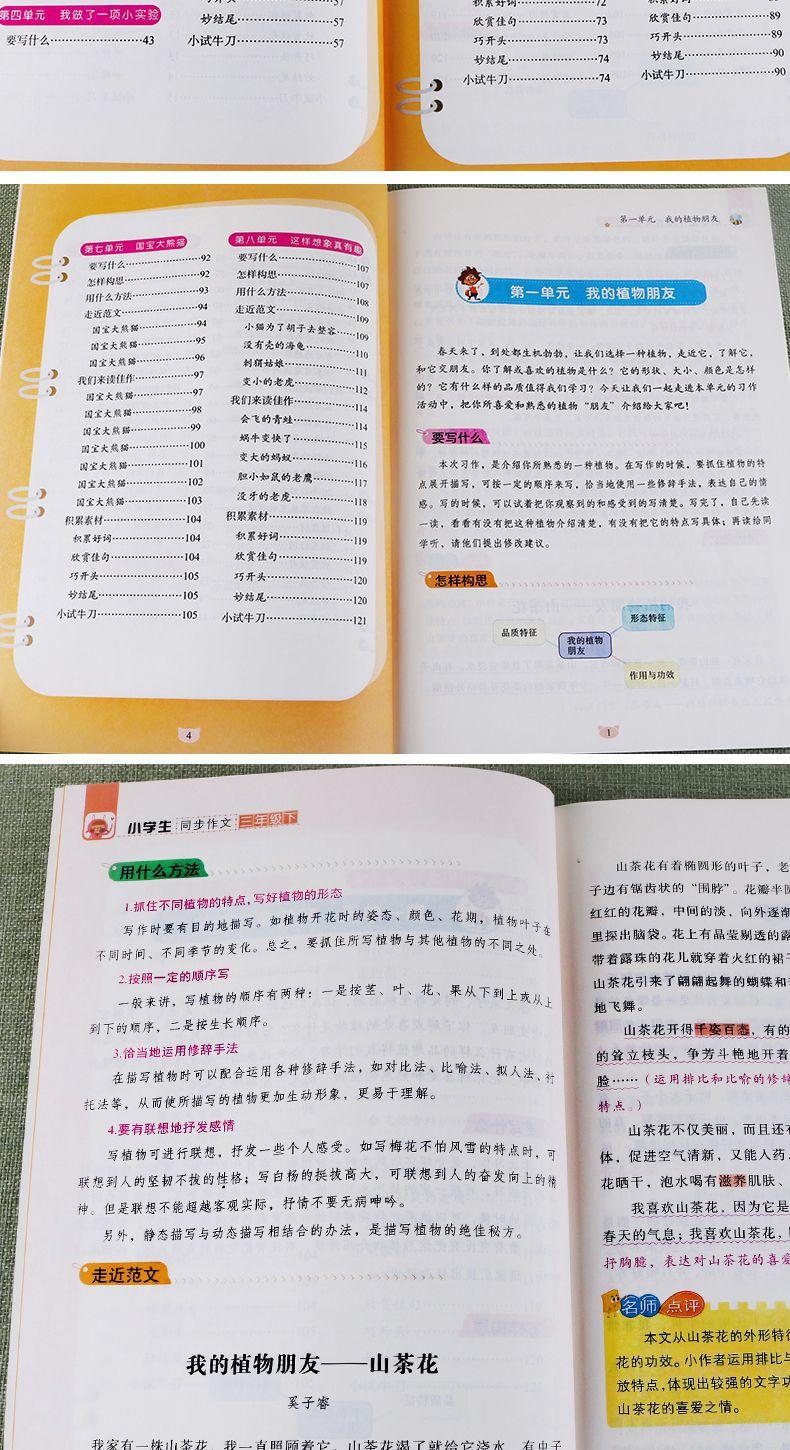 第四单元　我做了一项小实验
要写什么43
妙结尾57
小试牛刀57
欣赏佳句73
巧开头73
妙结尾74
小试牛刀74
欣赏佳句89
巧开头89
妙结尾90
小试牛刀90
第七单元　国宝大熊猫
要写什么92
怎样构思92
用什么方法93
走近范文94
国宝大熊猫94
国宝大熊猫95
国宝大熊猫96
我们来读佳作97
国宝大熊猫97
国宝大熊猫98
国宝大熊猫99
国宝大熊猫100
国宝大熊猫101
国宝大熊猫102
国宝大熊猫103
积累素材104
积累好词104
欣赏佳句104
巧开头105
妙结尾105
小试牛刀105
第八单元　这样想象真有趣
要写什么107
怎样构思107
用什么方法108
走近范文109
小猫为了胡子去整容109
没有壳的海龟110
刺猬姑娘111
变小的老虎112
我们来读佳作114
会飞的青蛙114
蜗牛变快了115
变大的蚂蚁116
胆小如鼠的老鹰117
没牙的老虎118
积累素材119
积累好词119
欣赏佳句119
巧开头120
妙结尾120
小试牛刀121
4
第一单元　我的植物朋友
第一单元　我的植物朋友
春天来了，到处都生机勃勃，让我们选择一种植物，走近它，了解它，
和它交朋友。你了解或喜欢的植物是什么？它的形状、大小、颜色是怎样
的？它有什么样的品质值得我们学习？今天让我们一起走进本单元的习作
活动中，把你所喜爱和熟悉的植物“朋友”介绍给大家吧！
要写什么
本次习作，是介绍你所熟悉的一种植物。在写作的时候，要抓住植物的特
点展开描写，可按一定的顺序来写，恰当地使用一些修辞手法，表达自己的情
感。写的时候，可以试着把你观察到的和感受到的写清楚。写完了，自己先读
一读，看看有没有把这种植物介绍清楚，有没有把它的特点写具体；再读给同
学听，请他们提出修改建议。
怎样构思
品质特征
我的植物
朋友
形态特征
作用与功效
1
小学生 同步作文 三年级下
用什么方法
1.抓住不同植物的特点，写好植物的形态
写作时要有目的地描写。如植物开花时的姿态、颜色、花期，植物叶子在
不同时间、不同季节的变化。总之，要抓住所写植物与其他植物的不同之处。
2.按照一定的顺序写
一般来讲，写植物的顺序有两种：一是按茎、叶、花、果从下到上或从上
到下的顺序，二是按生长顺序。
3.恰当地运用修辞手法
在描写植物时可以配合运用各种修辞手法，如对比法、比喻法、拟人法、衬
托法等，从而使所描写的植物更加生动形象，更易于理解。
4.要有联想地抒发感情
写植物可进行联想，抒发一些个人感受。如写梅花不怕风雪的特点时，可
联想到人的坚韧不拔的性格；写白杨的挺拔高大，可联想到人的奋发向上的精
神。但是联想不能超越客观实际，抒情不要无病呻吟。
另外，静态描写与动态描写相结合的办法，是描写植物的绝佳秘方。
走近范文
我的植物朋友——山茶花
奚子睿
我家有一株山茶花，我一直照顾着它。山茶花渴了就给它浇水，有虫子
山茶花有着椭圆形的叶子，老
子边有锯齿状的“围脖”。花瓣半圆
红红的花瓣，中间的淡，向外逐渐
里探出脑袋。花上有晶莹剔透的露
带着露珠的花儿就穿着火红的裙子
山茶花引来了翩翩起舞的蝴蝶和
地飞舞。
山茶花开得千姿百态，有的
的耸立枝头，争芳斗艳地开着
脸……（运用排比和比喻的修辞
特点。）
山茶花不仅美丽，而且还
体，促进空气清新，又能入药。
花晒干，泡水喝有滋养肌肤、
我喜欢山茶花，因为它是
春天的气息；我喜欢山茶花，
抒胸臆，表达对山茶花的喜爱
名师点评
本文从山茶花的外形特征
花的功效。小作者运用排比与
放特点，体现出较强的文字功
山茶花的喜爱之情。